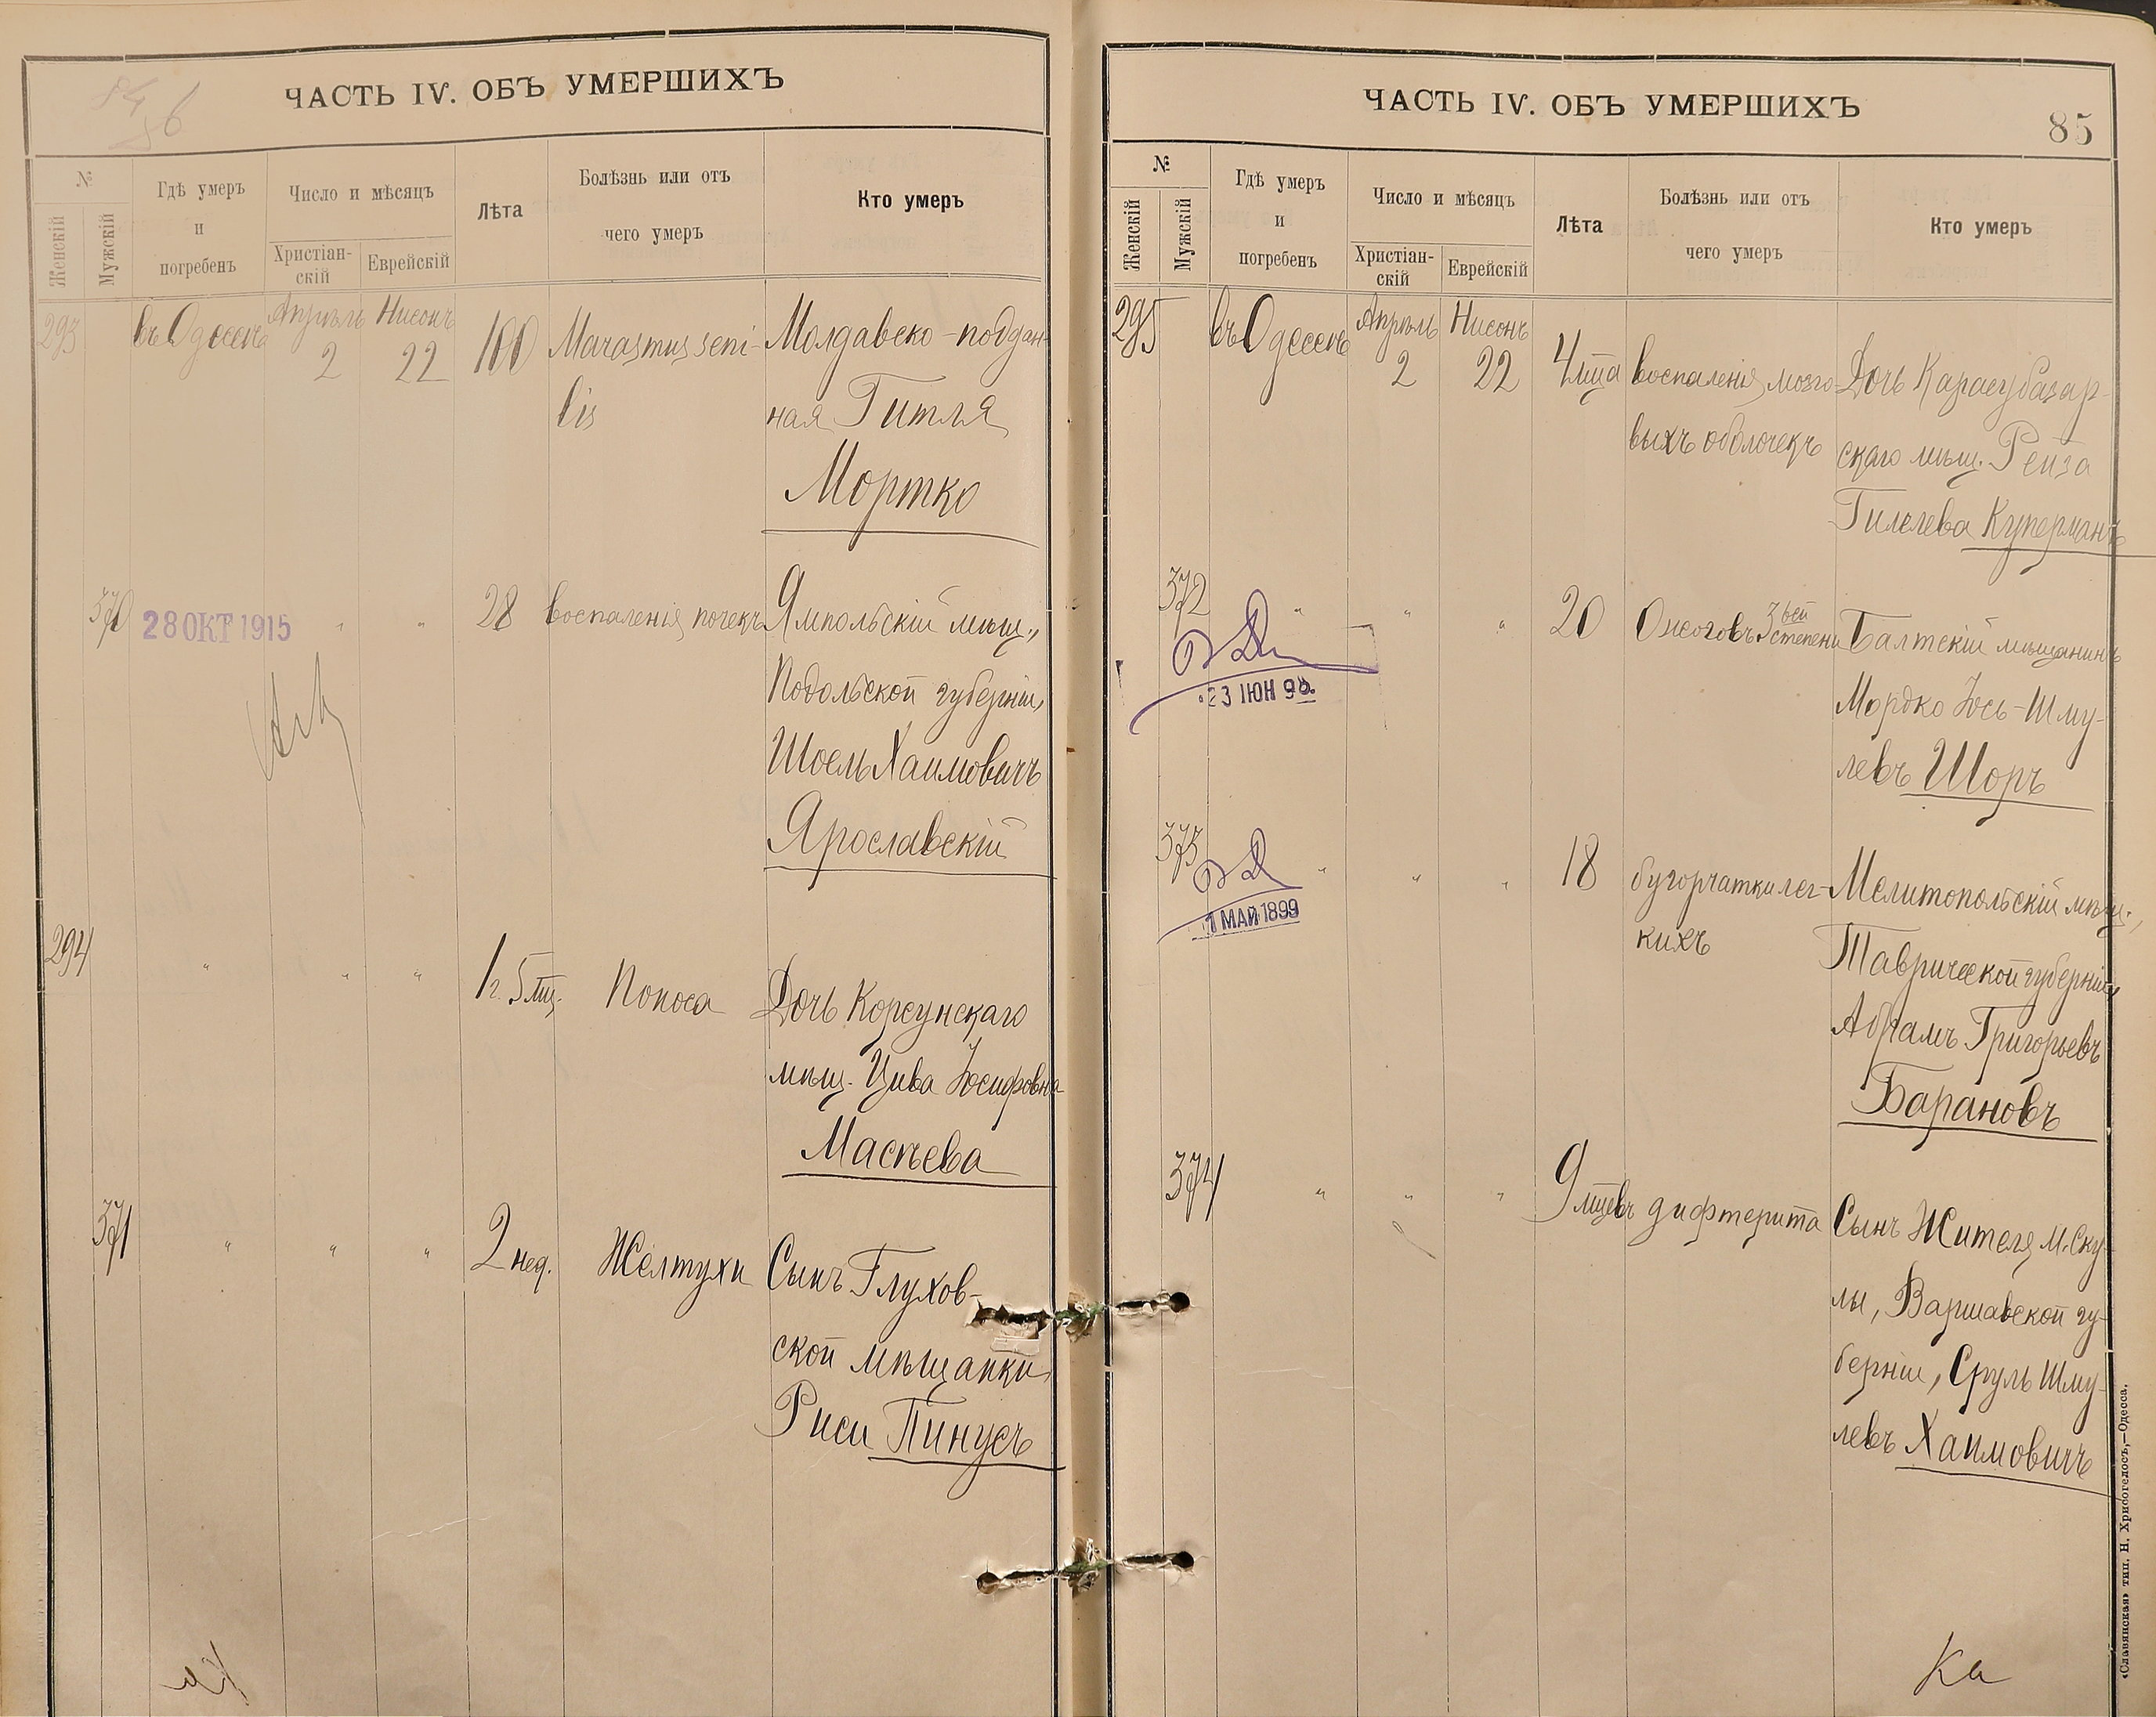 ЧАСТЬ IV. ОБЪ УМЕРШИХЪ
№
Женскій
Мужскій
Гдѣ умеръ
и
погребенъ
Число и мѣсяцъ
Христіан-
скій
Еврейскій
Лѣта
Болѣзнь или отъ
чего умеръ
Кто умеръ
293
въ Одессѣ
Апрѣль
2
Нисонъ
22
100
Marasmus seni-
lis
Молдавско-поддан-
ная Гитля
Мортко
370
28 ОКТ 1915
" "
28
Воспаленія почекъ
Ямпольскій мѣщ.,
Подольской губерніи,
Шоель Хаимовичъ
Ярославскій
294
" " "
1 г. 5 мц.
Поноса
Дочь Корсунскаго
мѣщ. Цива Іосифовна
Масѣева
371
" " "
2 нед.
Желтухи
Сынъ Глухов-
ской мѣщанки
Риси Пинусъ
Ка
ЧАСТЬ IV. ОБЪ УМЕРШИХЪ
85
№
Женскій
Мужскій
Гдѣ умеръ
и
погребенъ
Число и мѣсяцъ
Христіан-
скій
Еврейскій
Лѣта
Болѣзнь или отъ
чего умеръ
Кто умеръ
295
въ Одессѣ
Апрѣль
2
Нисонъ
22
4 мца
Воспаленія мозго-
выхъ оболочекъ
Дочь Карасубазар-
скаго мѣщ. Рейза
Гилелева Куперманъ
372
" " "
23 ІЮН
20
Ожоговъ 3ьей степени
Балтскій мѣщанинъ
Мордко Іось-Шму-
левъ Шоръ
373
" " "
1 МАЙ 1899
18
бугорчатки лег-
кихъ
Мелитопольскій мѣщ.,
Таврической губерніи,
Абрамъ Григорьевъ
Барановъ
374
" " "
9 мцевъ
дифтерита
Сынъ Жителя м. Ску-
лы, Варшавской гу-
берніи, Сруль Шму-
левъ Хаимовичъ
Ка
«Славянская» тип. Н. Хрисогелосъ,—Одесса,